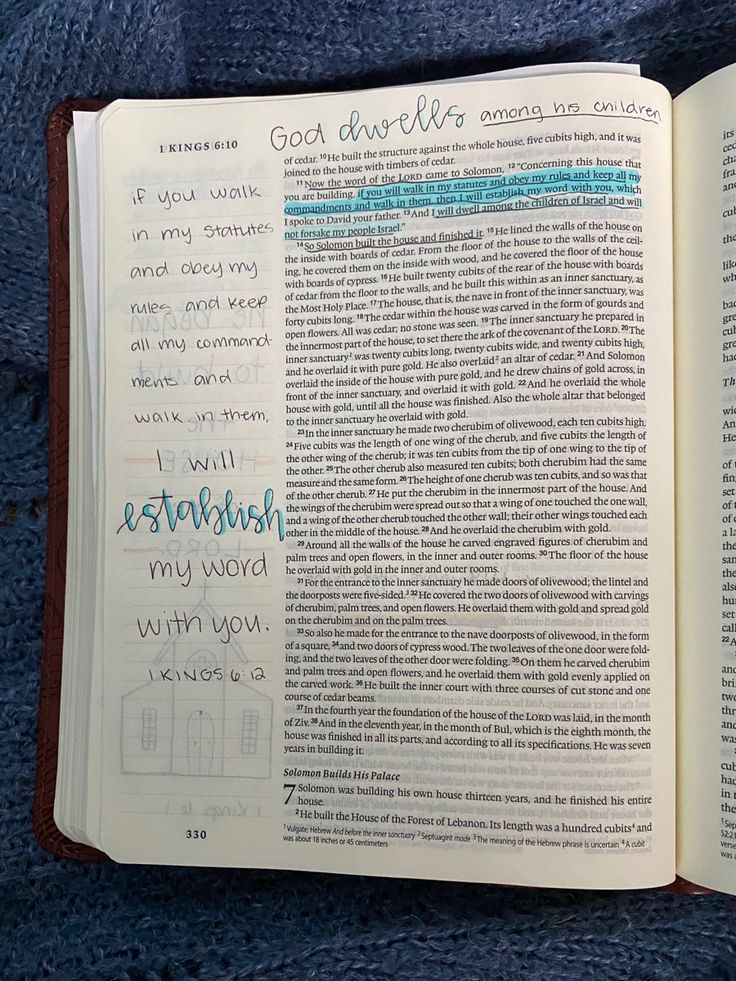 God dwells among his children
1 KINGS 6:10
if you walk
in my statutes
and obey my
rules and keep
all my command-
ments and
walk in them,
I will
establish
my word
with you.
1 KINGS 6:12
330
of cedar. 10 He built the structure against the whole house, five cubits high, and it was
joined to the house with timbers of cedar.
11 Now the word of the LORD came to Solomon, 12 “Concerning this house that
you are building, if you will walk in my statutes and obey my rules and keep all my
commandments and walk in them, then I will establish my word with you, which
I spoke to David your father. 13 And I will dwell among the children of Israel and will
not forsake my people Israel.”
14 So Solomon built the house and finished it. 15 He lined the walls of the house on
the inside with boards of cedar. From the floor of the house to the walls of the ceil-
ing, he covered them on the inside with wood, and he covered the floor of the house
with boards of cypress. 16 He built twenty cubits of the rear of the house with boards
of cedar from the floor to the walls, and he built this within as an inner sanctuary, as
the Most Holy Place. 17 The house, that is, the nave in front of the inner sanctuary, was
forty cubits long. 18 The cedar within the house was carved in the form of gourds and
open flowers. All was cedar; no stone was seen. 19 The inner sanctuary he prepared in
the innermost part of the house, to set there the ark of the covenant of the LORD. 20 The
inner sanctuary1 was twenty cubits long, twenty cubits wide, and twenty cubits high,
and he overlaid it with pure gold. He also overlaid2 an altar of cedar. 21 And Solomon
overlaid the inside of the house with pure gold, and he drew chains of gold across, in
front of the inner sanctuary, and overlaid it with gold. 22 And he overlaid the whole
house with gold, until all the house was finished. Also the whole altar that belonged
to the inner sanctuary he overlaid with gold.
23 In the inner sanctuary he made two cherubim of olivewood, each ten cubits high.
24 Five cubits was the length of one wing of the cherub, and five cubits the length of
the other wing of the cherub; it was ten cubits from the tip of one wing to the tip of
the other. 25 The other cherub also measured ten cubits; both cherubim had the same
measure and the same form. 26 The height of one cherub was ten cubits, and so was that
of the other cherub. 27 He put the cherubim in the innermost part of the house. And
the wings of the cherubim were spread out so that a wing of one touched the one wall,
and a wing of the other cherub touched the other wall; their other wings touched each
other in the middle of the house. 28 And he overlaid the cherubim with gold.
29 Around all the walls of the house he carved engraved figures of cherubim and
palm trees and open flowers, in the inner and outer rooms. 30 The floor of the house
he overlaid with gold in the inner and outer rooms.
31 For the entrance to the inner sanctuary he made doors of olivewood; the lintel and
the doorposts were five-sided.3 32 He covered the two doors of olivewood with carvings
of cherubim, palm trees, and open flowers. He overlaid them with gold and spread gold
on the cherubim and on the palm trees.
33 So also he made for the entrance to the nave doorposts of olivewood, in the form
of a square, 34 and two doors of cypress wood. The two leaves of the one door were fold-
ing, and the two leaves of the other door were folding. 35 On them he carved cherubim
and palm trees and open flowers, and he overlaid them with gold evenly applied on
the carved work. 36 He built the inner court with three courses of cut stone and one
course of cedar beams.
37 In the fourth year the foundation of the house of the LORD was laid, in the month
of Ziv. 38 And in the eleventh year, in the month of Bul, which is the eighth month, the
house was finished in all its parts, and according to all its specifications. He was seven
years in building it.
Solomon Builds His Palace
7 Solomon was building his own house thirteen years, and he finished his entire
house.
2 He built the House of the Forest of Lebanon. Its length was a hundred cubits4 and
1 Vulgate; Hebrew And before the inner sanctuary 2 Septuagint made 3 The meaning of the Hebrew phrase is uncertain 4 A cubit
was about 18 inches or 45 centimeters